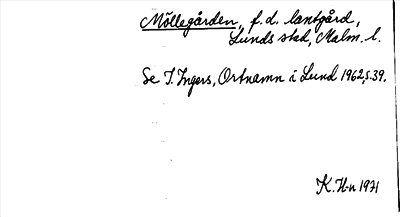 Möllegården, f.d. lantgård,
Lunds stad, Malm. l.
Se I. Ingers, Ortnamn i Lund 1962, s. 39.
K. H-n 1971